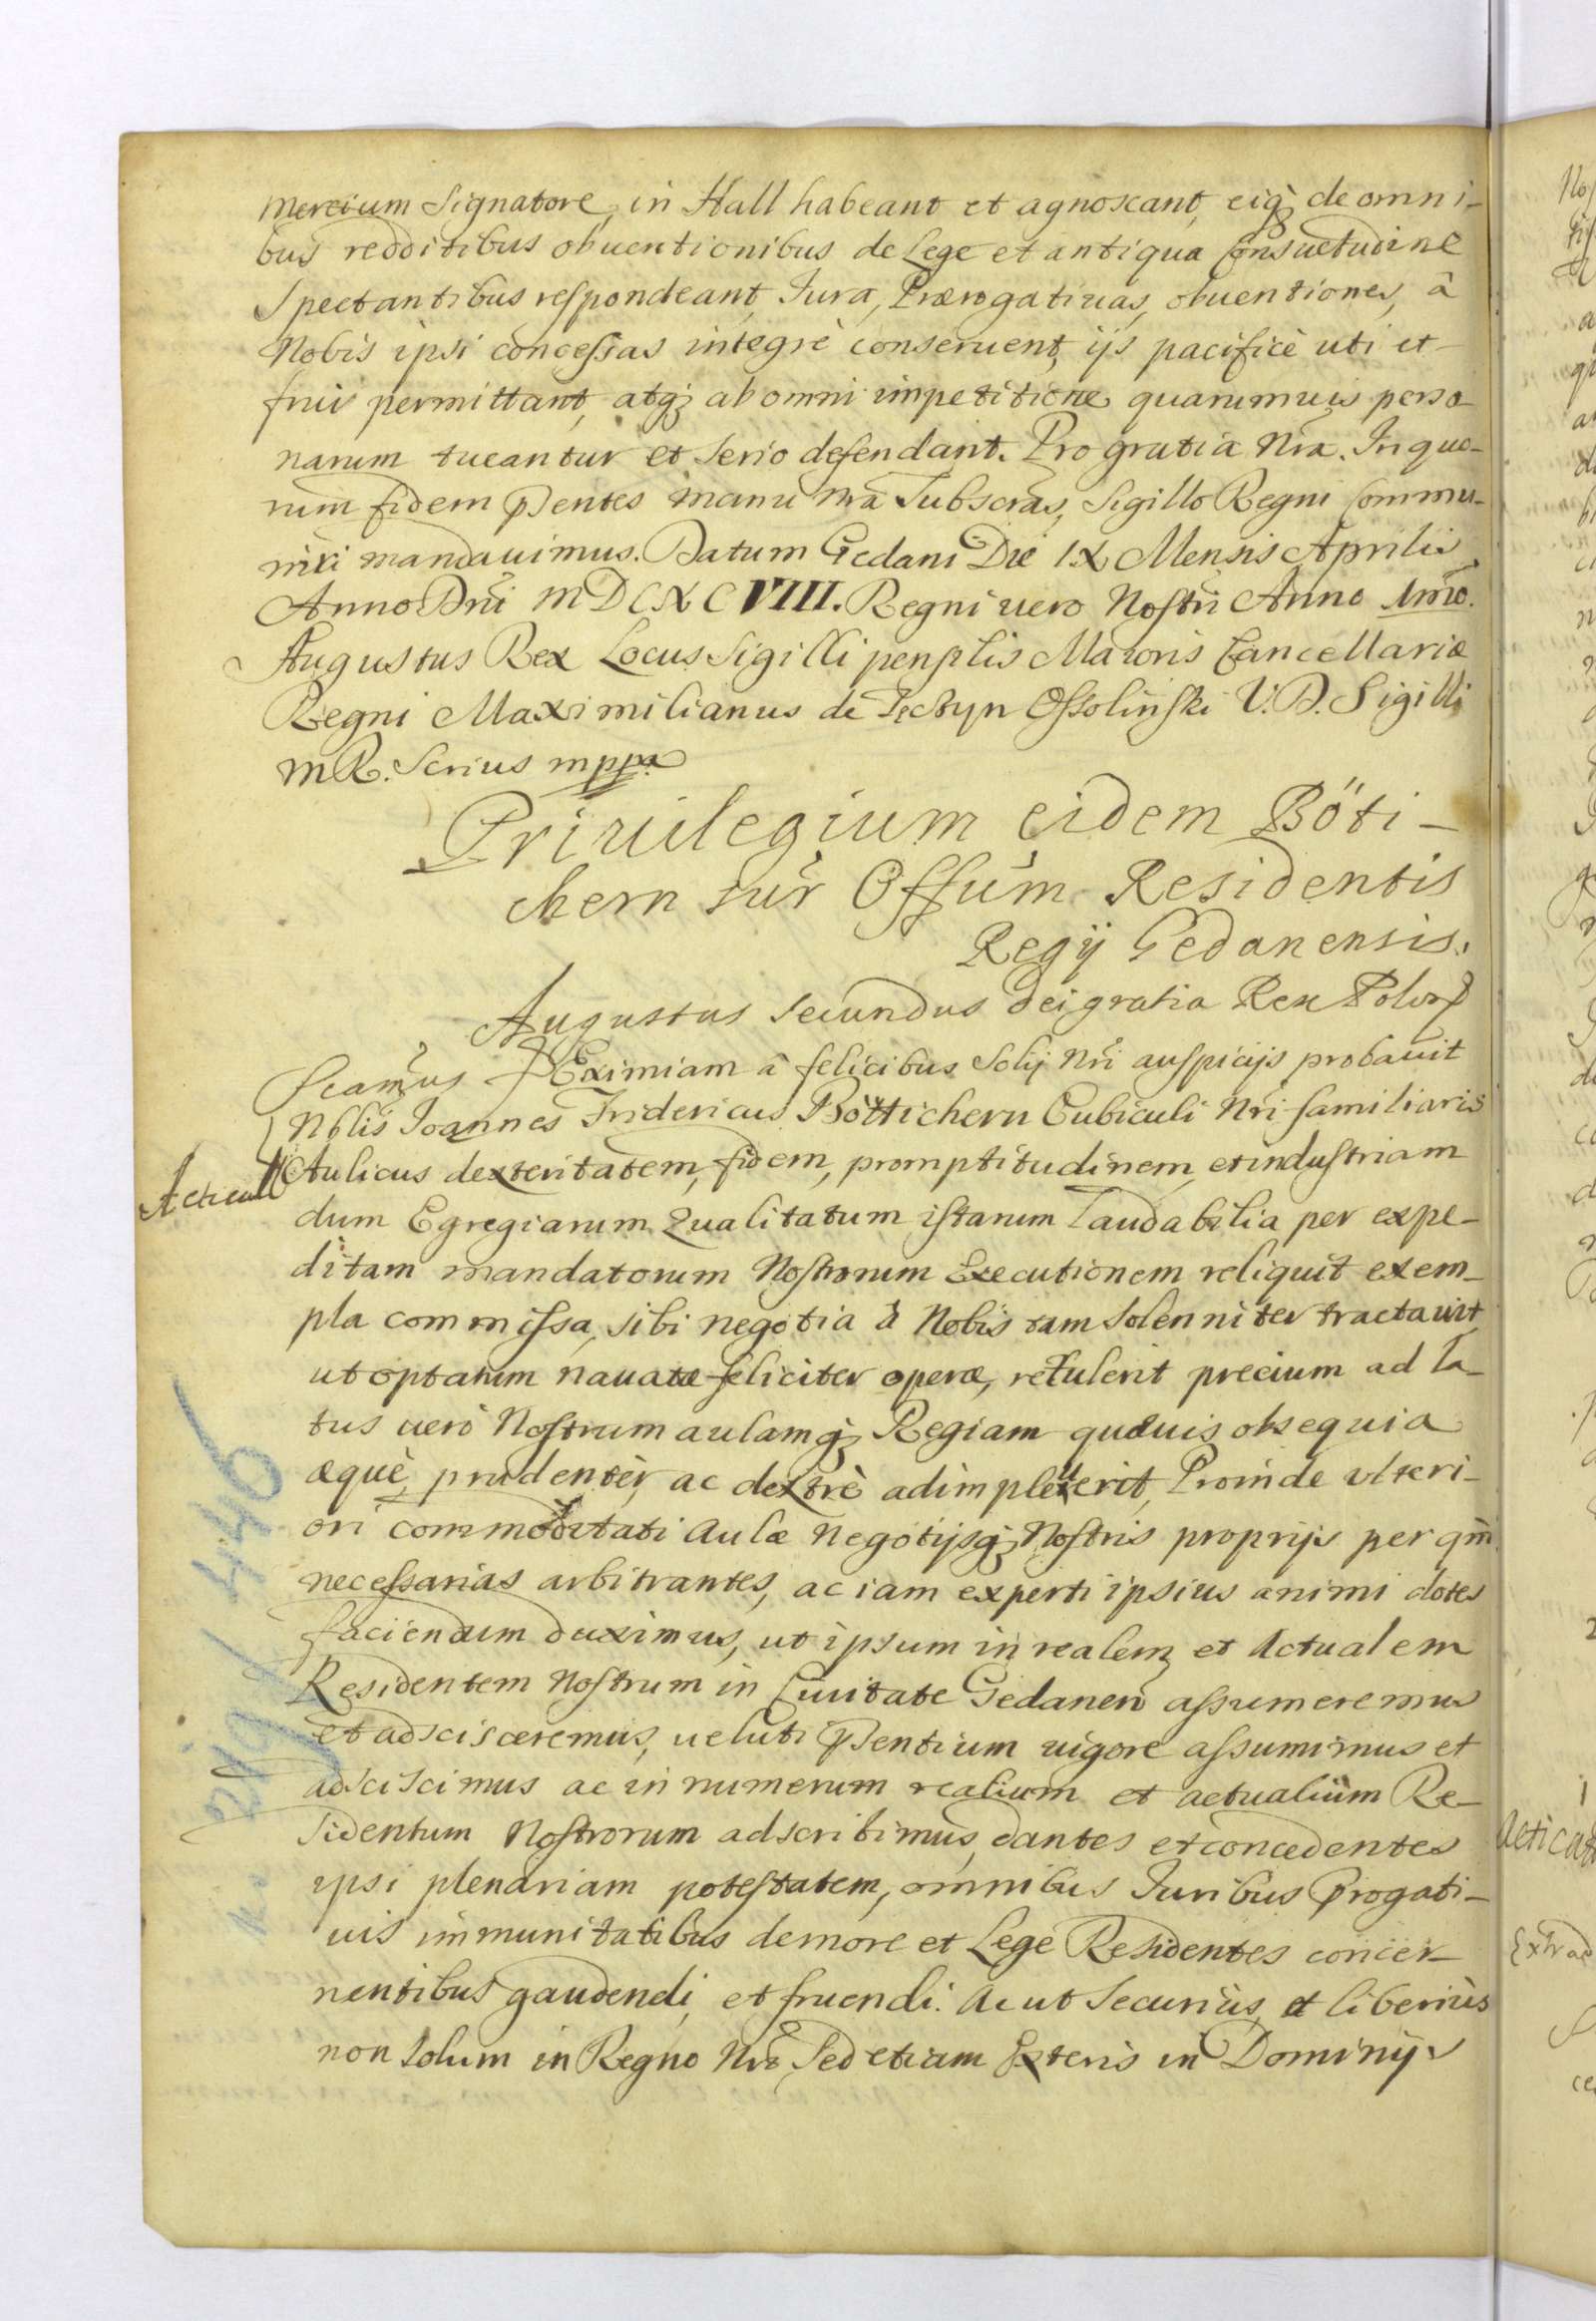 Mercium Signatore, in Hall habeant et agnoscant, eiq₃ de omni-
bus redditibus obuentionibus de Lege et antiqua Consuetudine
Spectantibus respondeant, Iura, Prærogatiuas, obuentiones, â
Nobis ipsi concessas integrè conseruent, ijs pacificè uti et
frui permittant, atq₃ ab omni impetitione quarumuis perso-
narum tueantur et serio defendant. Pro gratia Nra. In quo-
rum fidem pñtes manu Nra Subscras, Sigillo Regni Commu-
niri mandauimus. Datum Gedani Die IX Mensis Aprilis
Anno Dni MDCXCVIII. Regni uero Nostri Anno 1mo.
Augustus Rex Locus Sigilli pensilis Maioris Cancellariæ
Regni Maximilianus de Tęczyn Ossoliński V. D. Sigilli
MR. Scrius mppa
Priuilegium eidem Böti-
chern sur Offum Residentis
Regij Gedanensis.
Augustus Secundus Dei gratia Rex Polor
Eximiam â felicibus Solij Nri auspicijs probauit
Nblis Joannes Fridericus Böttichern Cubiculi Nri familiaris
Aulicus dexteritatem, fidem, promptitudinem, et industriam
dum Egregiarum Qualitatum istarum Laudabilia per expe-
ditam mandatorum Nostrorum Executionem reliquit exem-
pla commissa, sibi negotia à Nobis tam Solenniter tractauit
ut optatum nauatæ feliciter operæ, retulerit precium ad La-
tus uerò Nostrum aulamq₃ Regiam quæuis obsequia
æquè prudentèr, ac dextrè adimpleuerit, Proinde vlteri-
ori commoditati Aulæ Negotijsq₃ Nostris proprijs per qm
necessarias arbitrantes, ac iam experti ipsius animi dotes
faciendum duximus, ut ipsum in realem et Actualem
Residentem Nostrum in Ciuitate Gedanen assumeremus
et adscisceremus, ueluti pñtium uigore assumimus et
adsciscimus ac in numerum realium et actualium Re-
sidentum Nostrorum adscribimus, dantes et concedentes
ipsi plenariam potestatem, omnibus Iuribus Progati-
uis immunitatibus de more et Lege Residentes concer-
nentibus gaudendi, et fruendi. Ac ut Securiùs, et liberiùs
non Solum in Regno Nro, Sed etiam Exteris in Dominijs